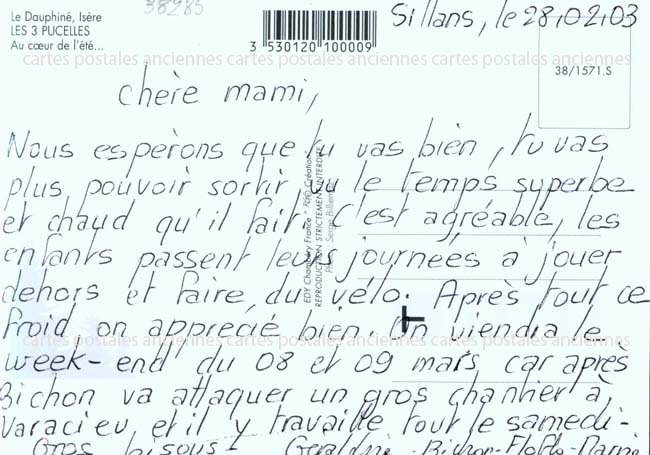 Le Dauphiné, Isère
LES 3 PUCELLES
Au cœur de l'été...
38985
3 530120 100009
Sillans, le 28.02.03
38/1571.S
cartes postales anciennes cartes postales anciennes cartes postales anciennes
chère mami,
Nous espérons que tu vas bien, tu vas
plus pouvoir sortir vu le temps superbe
et chaud qu'il fait. C'est agréable, les
enfants passent leurs journées à jouer
dehors et faire du vélo. Après tout ce
froid on apprecié bien. On viendra le
week-end du 08 et 09 mars, car après
Bichon va attaquer un gros chantier à
Varacieu, et il y travaille tout le samedi-
Gros bisous! Géraldine Bichon-Floflo-Marine
EDY Chambéry France - "Alp Création"
REPRODUCTION STRICTEMENT INTERDITE
Photo : Serge Billiemaz